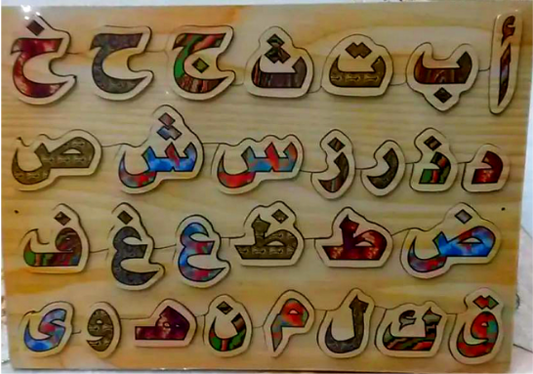 أ ب ت ث ج ح خ
د ذ ر ز س ش ص
ض ط ظ ع غ ف
ق ك ل م ن هـ و ى